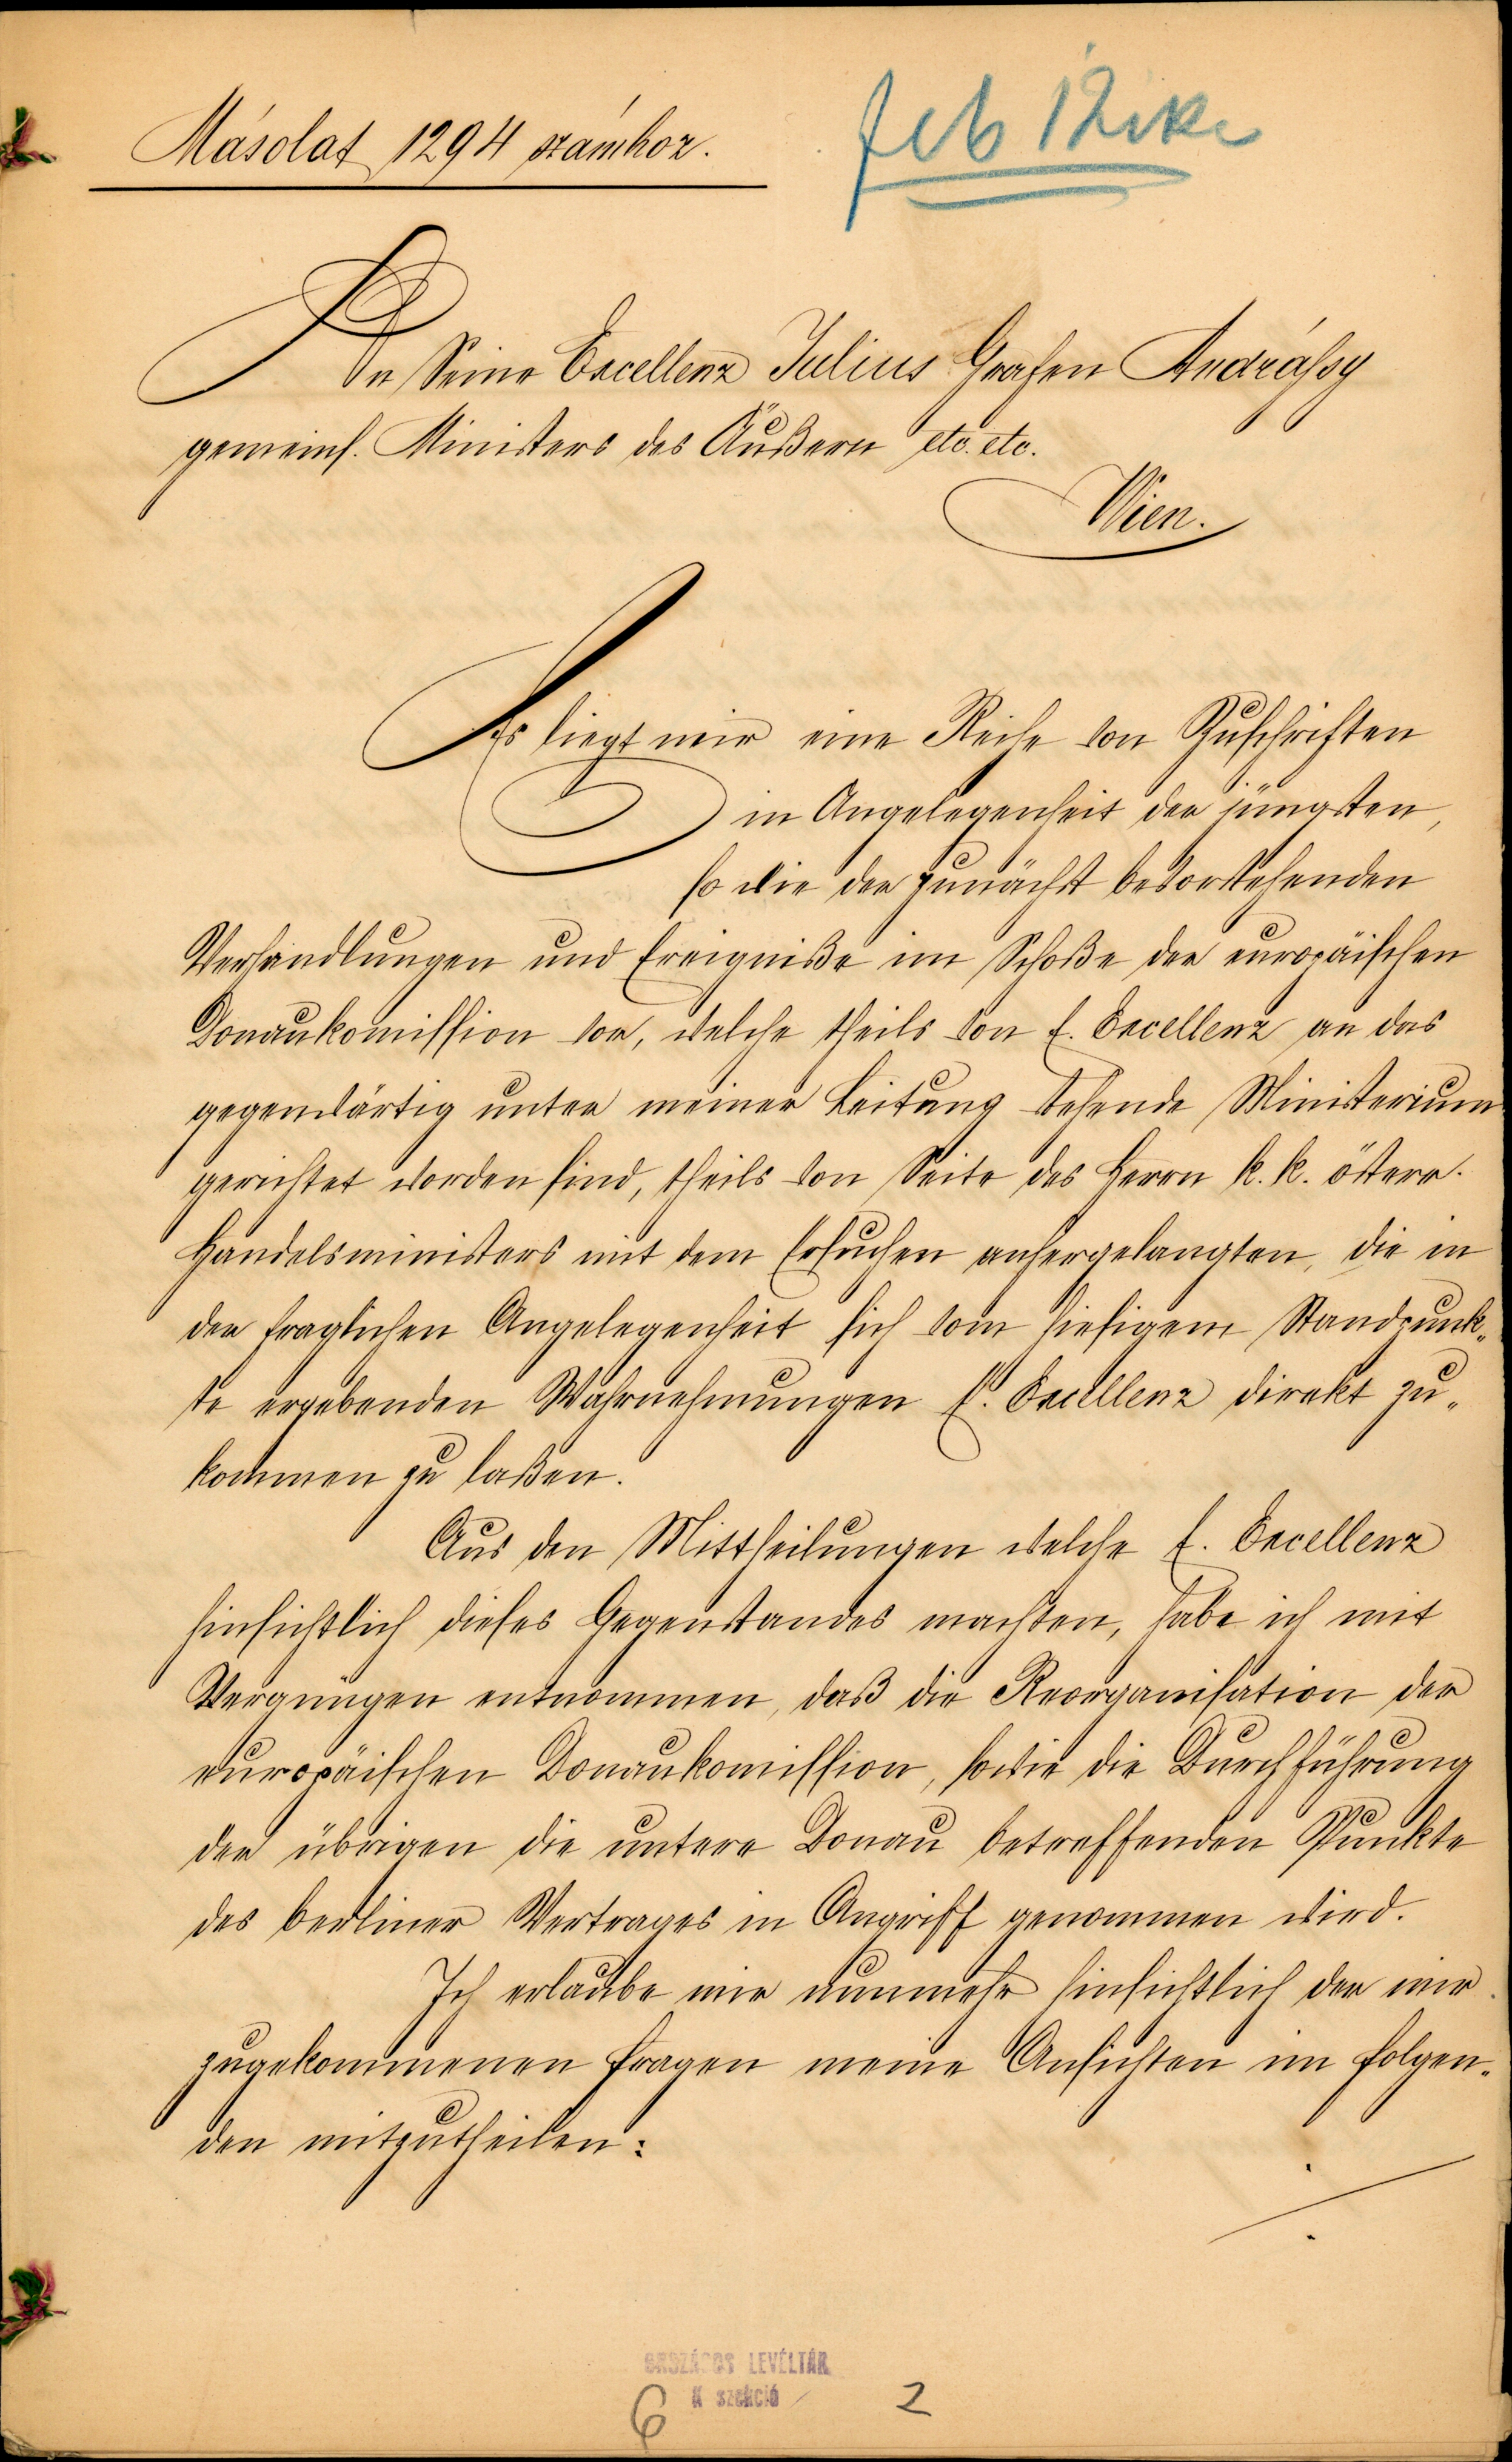 Másolat 1294 számhoz.
feb 12ike
An Seine Excellenz Julius Grafen Andráßy
gemeins. Ministers des Äußern etc. etc.
Wien.
Es liegt mir eine Reihe von Zuschriften
in Angelegenheit der jüngsten,
so wie der zunächst bevorstehenden
Verhandlungen und Ereigniße im Schoße der europäischen
Donaukomission vor, welche theils von E. Excellenz an das
gegenwärtig unter meiner Leitung stehende Ministerium
gerichtet worden sind, theils von Seite des Herrn k. k. österr.
Handelsministers mit dem Ersuchen anhergelangten, die in
der fraglichen Angelegenheit sich vom hiesigem Standpunk„
te ergebenden Wahrnehmungen E. Excellenz direkt zu„
kommen zu laßen.
Aus den Mittheilungen welche E. Excellenz
hinsichtlich dieses Gegenstandes machten, habe ich mit
Vergnügen entnommen, daß die Reorganisation der
europäischen Donaukomission, sowie die Durchführung
der übrigen die untere Donau betreffenden Punkte
des berliner Vertrages in Angriff genommen wird.
Ich erlaube mir nunmehr hinsichtlich der mir
zugekommenen Fragen meine Ansichten im folgen„
den mitzutheilen:
./.
ORSZÁGOS LEVÉLTÁR
K szekció
6 2